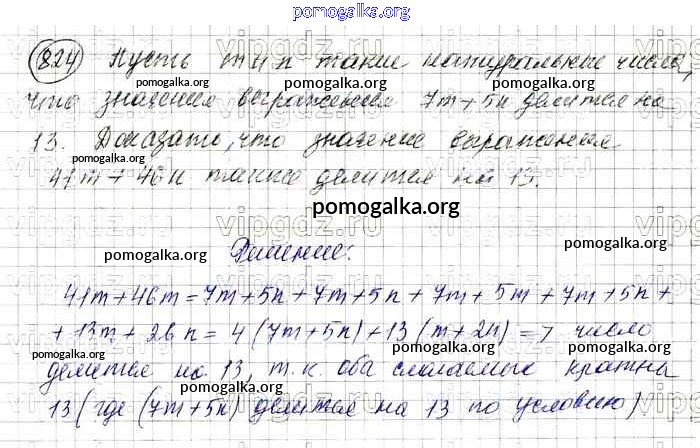 pomogalka.org
824 Пусть m и n такие натуральные числа,
pomogalka.org pomogalka.org pomogalka.org
что значения выражения 7m+5n делится на
13. Доказать, что значение выражения
pomogalka.org pomogalka.org
41m + 46n также делится на 13.
pomogalka.org
vipgdz.ru
pomogalka.org pomogalka.org
Решение:
41m+46m = 7m+5n + 7m+5n + 7m + 5m + 7m + 5n +
+ 13m + 26n = 4(7m+5n) + 13(m+2n) => число
pomogalka.org pomogalka.org
делится на 13, т.к оба слагаемых кратна
pomogalka.org pomogalka.org
13 (где (7m+5n) делится на 13 по условию)
pomogalka.org